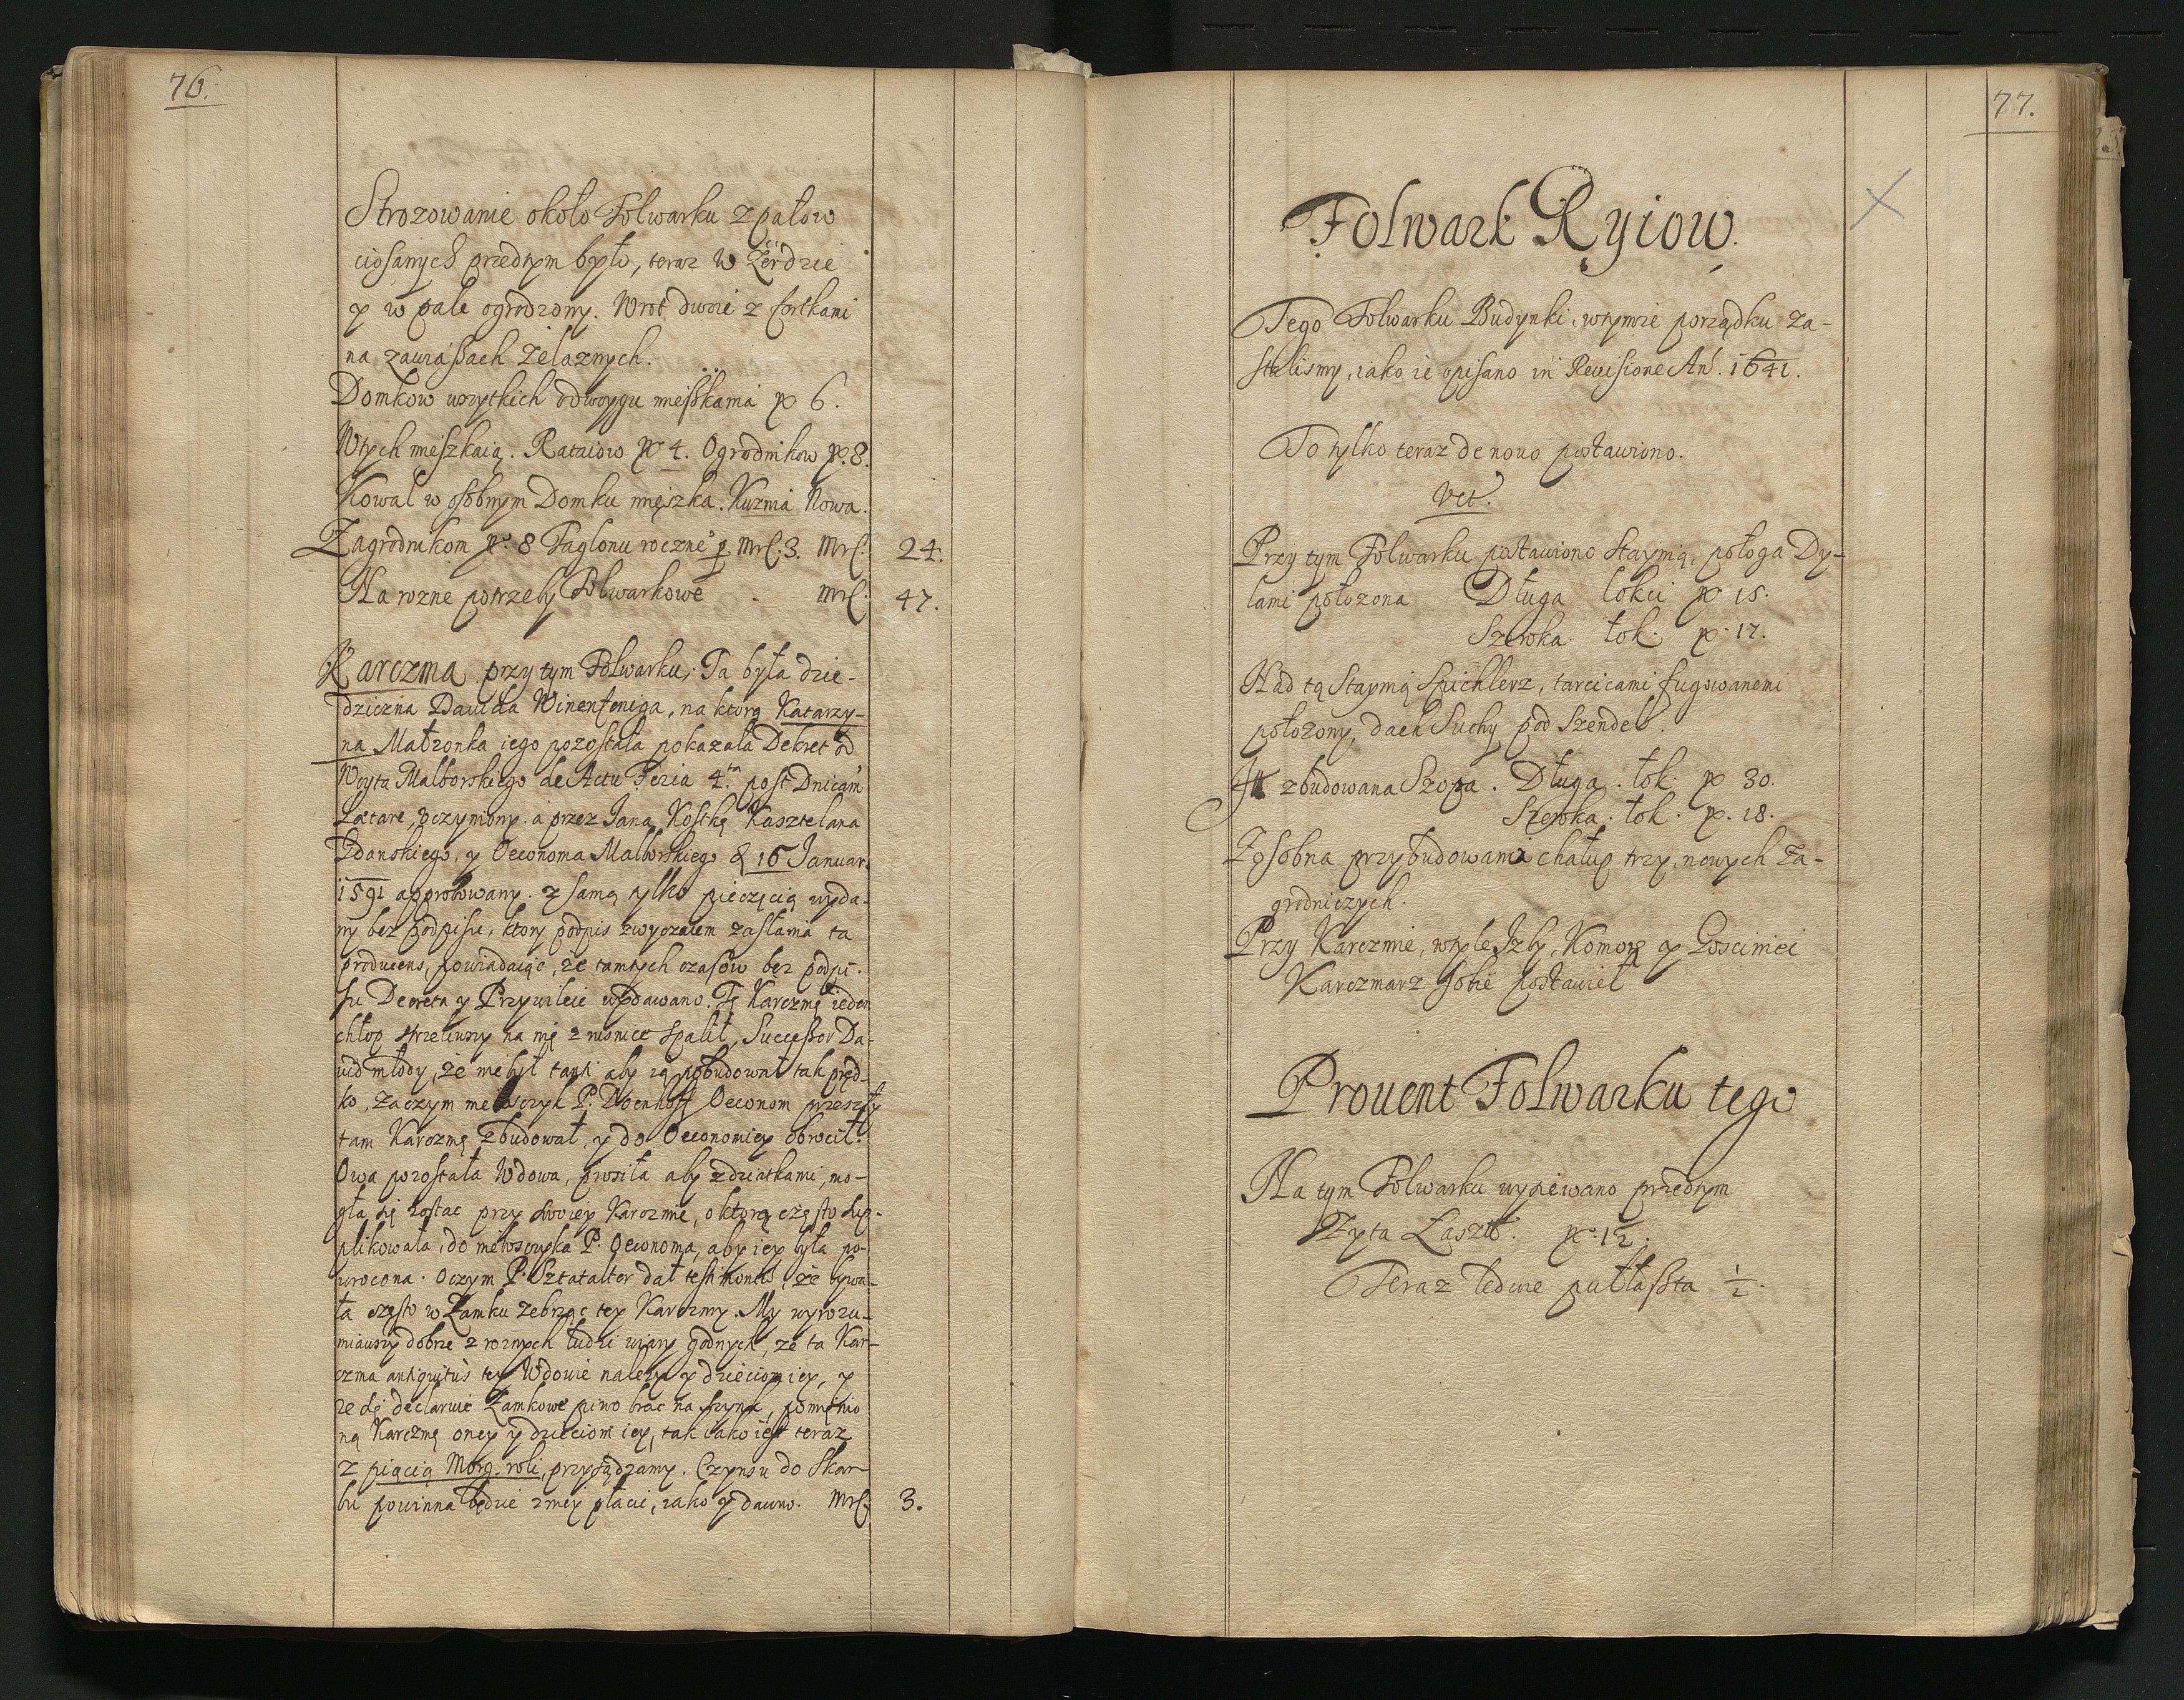 76.
Strozowanie około Folwarku z pałow
ciosanych przedtym było, teraz w Żerdzie
y w pale ogrodzony. Wrot dwoie z fortkami
na zawiaßach Żelaznych.
Domkow wszytkich o dwoygu mieszkania pº 6.
Wtych mieszkaią. Rataiow pº 4. Ogrodnikow pº. 8.
Kowal w osobnym Domku mięszka. Kuznia Nowa.
Zagrodnikom pº. 8 Taglonu roczneº p Mrl. 3. Mrl. 24.
Na rozne potrzeby Folwarkowe - Mrl. 47.
Karczma przy tym Folwarku; Ta była dzie-
dziczna Dawida, na ktorą Katarzy-
na Małzonka iego pozostała pokazała Dekret od
Woyta Malborskiego de Actu Feria 4ta post Dnicam
Lætare, uczyniony. a przez Jana Kostkę Kasztelana
Gdanskiego, y Oeconoma Malborskiego 16 Januar.
1591 approbowany. z samą tylko pieczęcią wyda-
ny bez podpisu, ktory podpis zwyczaiem zasłania ta
producens, powiadaiąc, że tamtych czasow bez podpi-
su Decreta y Przywileie wydawano. Tę Karczmę ieden
chłop strzeliwszy na nię z rusnice spalił, Succeßor Da-
wid młody, że nie był tani aby ią pobudował tak pręd-
ko, zaczym nieboszczyk P. Doenhoff Oeconom przeszły
tam Karczmę zbudował, y do Oeconomiey obrocił.
Owa pozostała Wdowa, prosiła aby z dziatkami mo-
gła się zostac przy swoiey Karczmie, o ktorą często sup-
plikowała, do nieboszczyka P. Oeconoma, aby iey była po-
wrocona. Oczym P. Sztatalter dał testimonies, że bywa-
ła często w Zamku zebrząc tey Karczmy. My wyrozu-
miawszy dobrze z roznych ludzi wiary godnych, ze ta Kar-
czma antiquitus tey Wdowie nalezy y dzieciom iey, y
ze się declaruie Zamkowe piwo brac na szynk, pomienio
ną Karczmę oney y dzieciom iey, tak iako iest teraz
z piącią Morg. roli, przysądzamy. Czynsu do Skar-
bu powinna będzie z niey płacic, iako y dawno. Mrl. 3.
77.
Folwark Ryiow.
Tego Folwarku Budynki, wtymze porządku za-
stalismy, iako ie opisano in Reuisione Aň. 1641.
To tylko teraz de nouo postawiono.
Vct.
Przy tym Folwarku postawiono staynią, połoga Dy-
lami połozona Długa łokci pº 15.
Szeroka. łok. pº. 12.
Nad tą staynią Spichlerz, tarcicami fugowanemi
połozony, dach Suchy pod Szendel.
zbudowana Szopa. Długa. łok. pº 30.
Szeroka. łok. pº. 18.
Zosobna przybudowania chałup trzy, nowych Za-
grodniczych.
Przy Karczmie, wtyle Izby, Komorę y Goscinięi
Karczmarz sobie postawieł
Prouent Folwarku tego
Na tym Folwarku wysiewano przedtym
Zyta Łaszto. pº. 12.
Teraz ledwie pułłaßta ½.